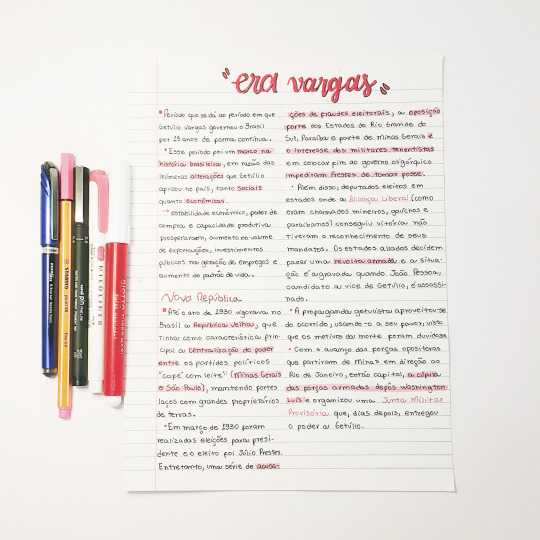 "era vargas"
▪ Período que se dá ao período em que
Getúlio Vargas governou o Brasil
por 15 anos de forma contínua.
• Esse período foi um marco na
história brasileira, em razão das
inúmeras alterações que Getúlio
aplicou no país, tanto sociais
quanto econômicas.
→ estabilidade econômica, poder de
compra e capacidade produtiva
prosperaram, aumento no volume
de exportações, investimentos
públicos na geração de empregos e
aumento do padrão de vida.
Nova República
▪ Até o ano de 1930 vigorava no
Brasil a República Velha, que
tinha como característica prin-
cipal a centralização do poder
entre os partidos políticos
"café com leite" (Minas Gerais
e São Paulo), mantendo fortes
laços com grandes proprietários
de terras.
• Em março de 1930 foram
realizadas eleições para presi-
dente e o eleito foi Júlio Prestes.
Entretanto, uma série de acusa-
ções de fraudes eleitorais, a oposição
por parte dos Estados do Rio Grande do
Sul, Paraíba e parte de Minas Gerais e
o interesse dos militares tenentistas
em colocar fim ao governo oligárquico
impediram Prestes de tomar posse.
• Além disso, deputados eleitos em
estados onde a Aliança Liberal (como
eram chamados mineiros, gaúchos e
paraibanos) conseguiu vitória não
tiveram o reconhecimento de seus
mandatos. Os estados aliados decidem
fazer uma revolta armada e a situa-
ção é agravada quando João Pessoa,
candidato a vice de Getúlio, é assassi-
nado.
▪ A propaganda getulista aproveitou-se
do ocorrido, usando-o a seu favor, visto
que os motivos da morte foram duvidosos
• Com o avanço das forças opositoras
que partiram de Minas em direção ao
Rio de Janeiro, então capital, a cúpula
das forças armadas depôs Washington
Luís e organizou uma Junta Militar
Provisória que, dias depois, entregou
o poder a Getúlio.
STABILO